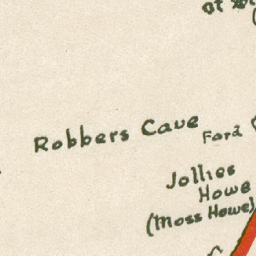 Robbers Cave
Ford
Jollies
Howe
(Moss Howe)